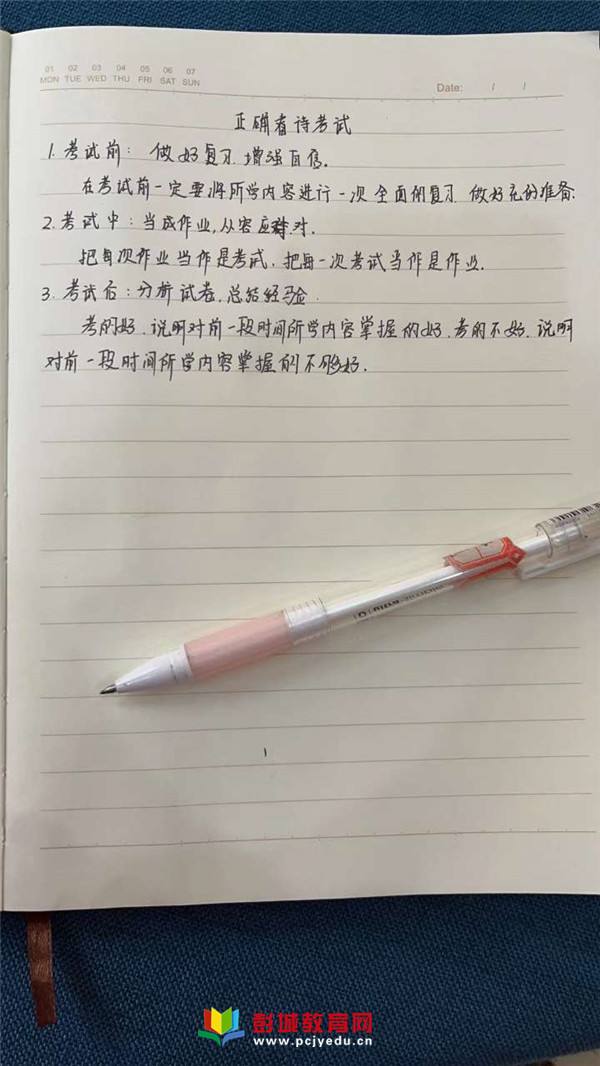 01 02 03 04 05 06 07
MON TUE WED THU FRI SAT SUN
Date: / /
正确看待考试
1.考试前：做好复习.增强自信.
在考试前一定要将所学内容进行一次全面的复习.做好充分准备.
2.考试中：当成作业,从容应对.
把每次作业当作是考试.把每一次考试当作是作业.
3.考试后：分析试卷.总结经验.
考的好.说明对前一段时间所学内容掌握的好.考的不好.说明
对前一段时间所学内容掌握的不够好.
彭城教育网
www.pcjyedu.cn